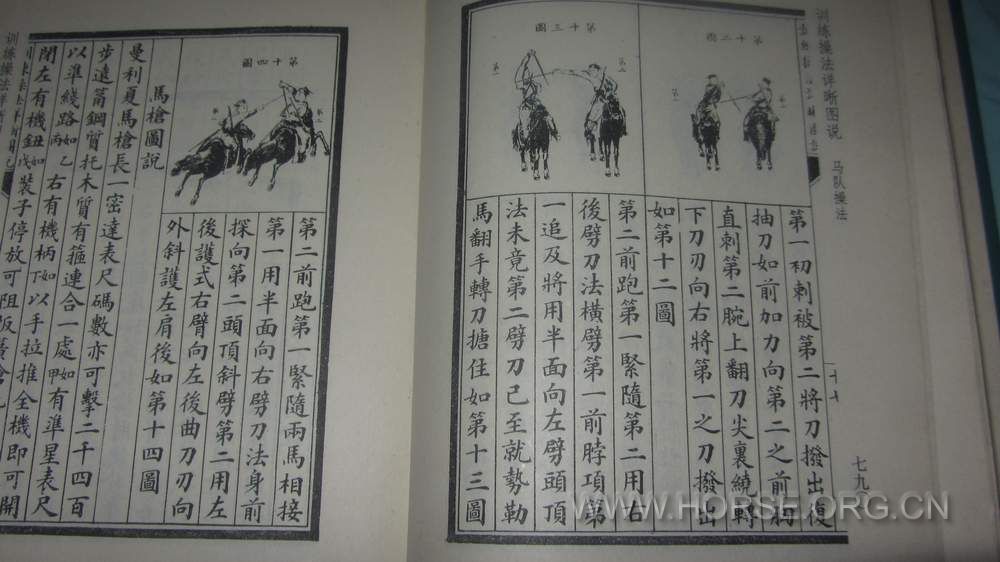 训练操法详晰图说
马队操法
七九
第十二圖
第一
第二
第一初刺被第二將刀撥出復
抽刀如前加力向第二之前胸
直刺第二腕上翻刀尖裏繞轉
下刀刃向右將第一之刀撥出
如第十二圖
第十三圖
第二
第一
第二前跑第一緊隨第二用右
後劈刀法橫劈第一前脖項第
一追及將用半面向左劈頭頂
法未竟第二劈刀已至就勢勒
馬翻手轉刀搪住如第十三圖
第十四圖
第一
第二
第二前跑第一緊隨兩馬相接
第一用半面向右劈刀法身前
探向第二頭頂斜劈第二用左
後護式右臂向左後曲刀刃向
外斜護左肩後如第十四圖
馬槍圖說
曼利夏馬槍長一密達表尺碼數亦可擊二千四百
步遠筩鋼質托木質有箍連合一處如甲有準星表尺
以準綫路如乙丙右有機柄如丁以手拉推全機即可開
閉左有機鈕如戊裝子停放可阻扳簧槍
训练操法详晰图说
WWW.HORSE.ORG.CN